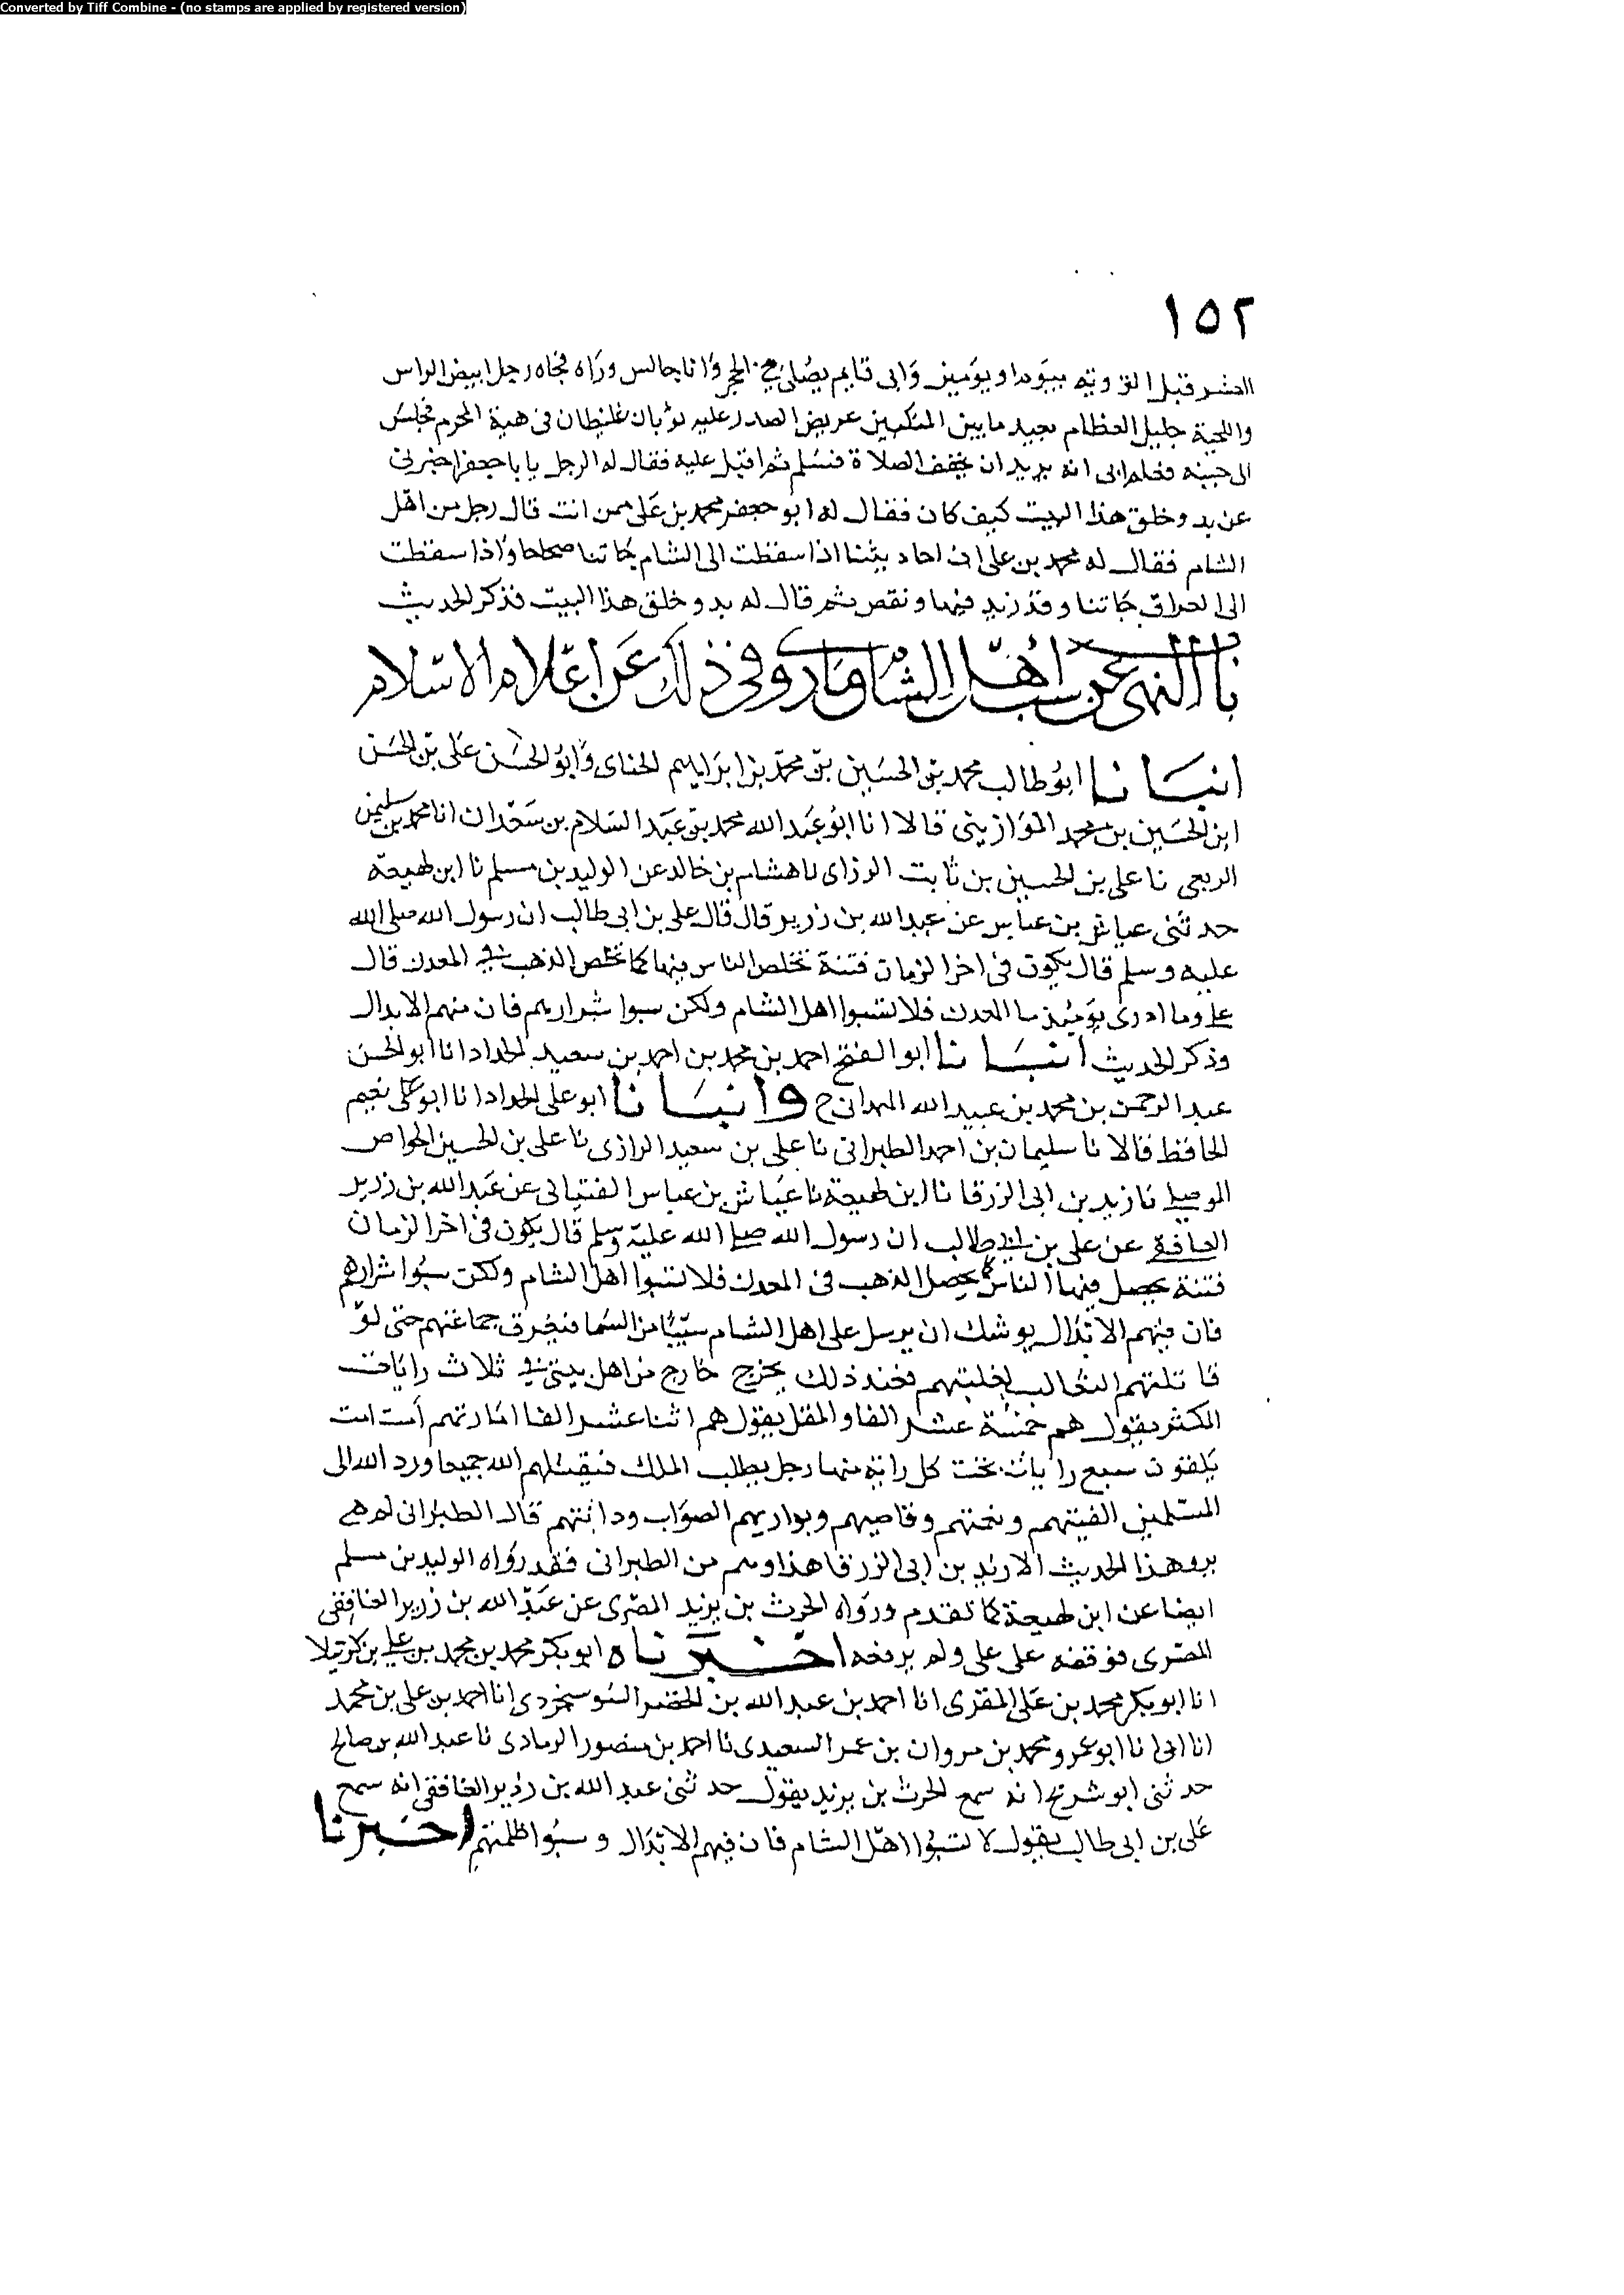 Converted by Tiff Combine - (no stamps are applied by registered version)
١٥٢
العشر قبل التروية بيوم او يومين وابى قايم يصلى في الحجر وانا جالس وراه فجاه رجل ابيض الراس
واللحية جليل العظام بعيد ما بين المنكبين عريض الصدر عليه ثوبان غليظان فى هية المحرم فجلس
الى جنبه فعلم ابى انه يريد ان يخفف الصلاة فسلم ثم اقبل عليه فقال له الرجل يا با جعفر اخبرنى
عن بدو خلق هذا البيت كيف كان فقال له ابو جعفر محمد بن على ممن انت قال رجل من اهل
الشام فقال له محمد بن على ان احاديثنا اذا سقطت الى الشام جاتنا صحاحا واذا سقطت
الى العراق جاتنا وقد زيد فيها ونقص ثم قال له بدو خلق هذا البيت فذكر الحديث
باب النهى عن سب اهل الشام وما روى فى ذلك عن اعلام الاسلام
انبانا ابو طالب محمد بن الحسين بن محمد بن ابراهيم الحناى وابو الحسن على بن الحسن
ابن الحسين بن محمد الموازينى قالا انا ابو عبد الله محمد بن عبد السلام بن سعدان انا محمد بن سليمن
الربعى نا على بن الحسين بن ثابت الرزاى نا هشام بن خالد عن الوليد بن مسلم نا ابن لهيعة
حدثنى عياش بن عباس عن عبد الله بن زرير قال قال على بن ابى طالب ان رسول الله صلى الله
عليه وسلم قال يكون فى اخر الزمان فتنة تخلص الناس فيها كما تخلص الذهب في المعدن قال
على وما ادرى يومئذ ما المعدن فلا تسبوا اهل الشام ولكن سبوا شرارهم فان منهم الابدال
وذكر الحديث انبانا ابو الفتح احمد بن محمد بن احمد بن سعيد الحداد انا ابو الحسن
عبد الرحمن بن محمد بن عبيد الله الهمدانى ح وانبانا ابو على الحداد انا ابو على نعيم
الحافظ قالا نا سليمان بن احمد الطبرانى نا على بن سعيد الرازى نا على بن الحسين الخواص
الموصلى نا زيد بن ابى الزرقا نا ابن لهيعة نا عياش بن عباس الفتيانى عن عبد الله بن زرير
الغافقى عن على بن ابى طالب ان رسول الله صلى الله عليه وسلم قال يكون فى اخر الزمان
فتنة يحصل فيها الناس كما يحصل الذهب فى المعدن فلا تسبوا اهل الشام ولكن سبوا شرارهم
فان فيهم الابدال يوشك ان يرسل على اهل الشام سيبا من السما فيفرق جماعتهم حتى لو
قاتلتهم الثعالب لغلبتهم فعند ذلك يخرج خارج من اهل بيتى في ثلاث رايات
المكثر يقول هم خمسة عشر الفا والمقل يقول هم اثنا عشر الفا امارتهم امت امت
يلقون سبع رايات تحت كل راية منها رجل يطلب الملك فيقتلهم الله جميعا ورد الله الى
المسلمين الفيتهم ونعمتهم وقاصيهم الصواب ودانيتهم قال الطبرانى لم
يرو هذا الحديث الا زيد بن ابى الزرقا هذا وهم من الطبرانى فقد رواه الوليد بن مسلم
ايضا عن ابن لهيعة كما تقدم ورواه الحرث بن يزيد المصرى عن عبد الله بن زرير الغافقى
المصرى فوقفه على على ولم يرفعه اخبرناه ابو بكر محمد بن محمد بن على بن كرتيلا
انا ابو بكر محمد بن على المقرى انا احمد بن عبد الله بن الخضر السوسنجردى انا احمد بن على بن محمد
انا ابى انا ابو عمرو محمد بن مروان بن عمر السعيدى نا احمد بن منصور الرمادى نا عبد الله بن صالح
حدثنى ابو شريح انه سمع الحرث بن يزيد يقول حدثنى عبد الله بن زرير الغافقى انه سمع
على بن ابى طالب يقول لا تسبوا اهل الشام فان فيهم الابدال وسبوا ظلمتهم اخبرنا